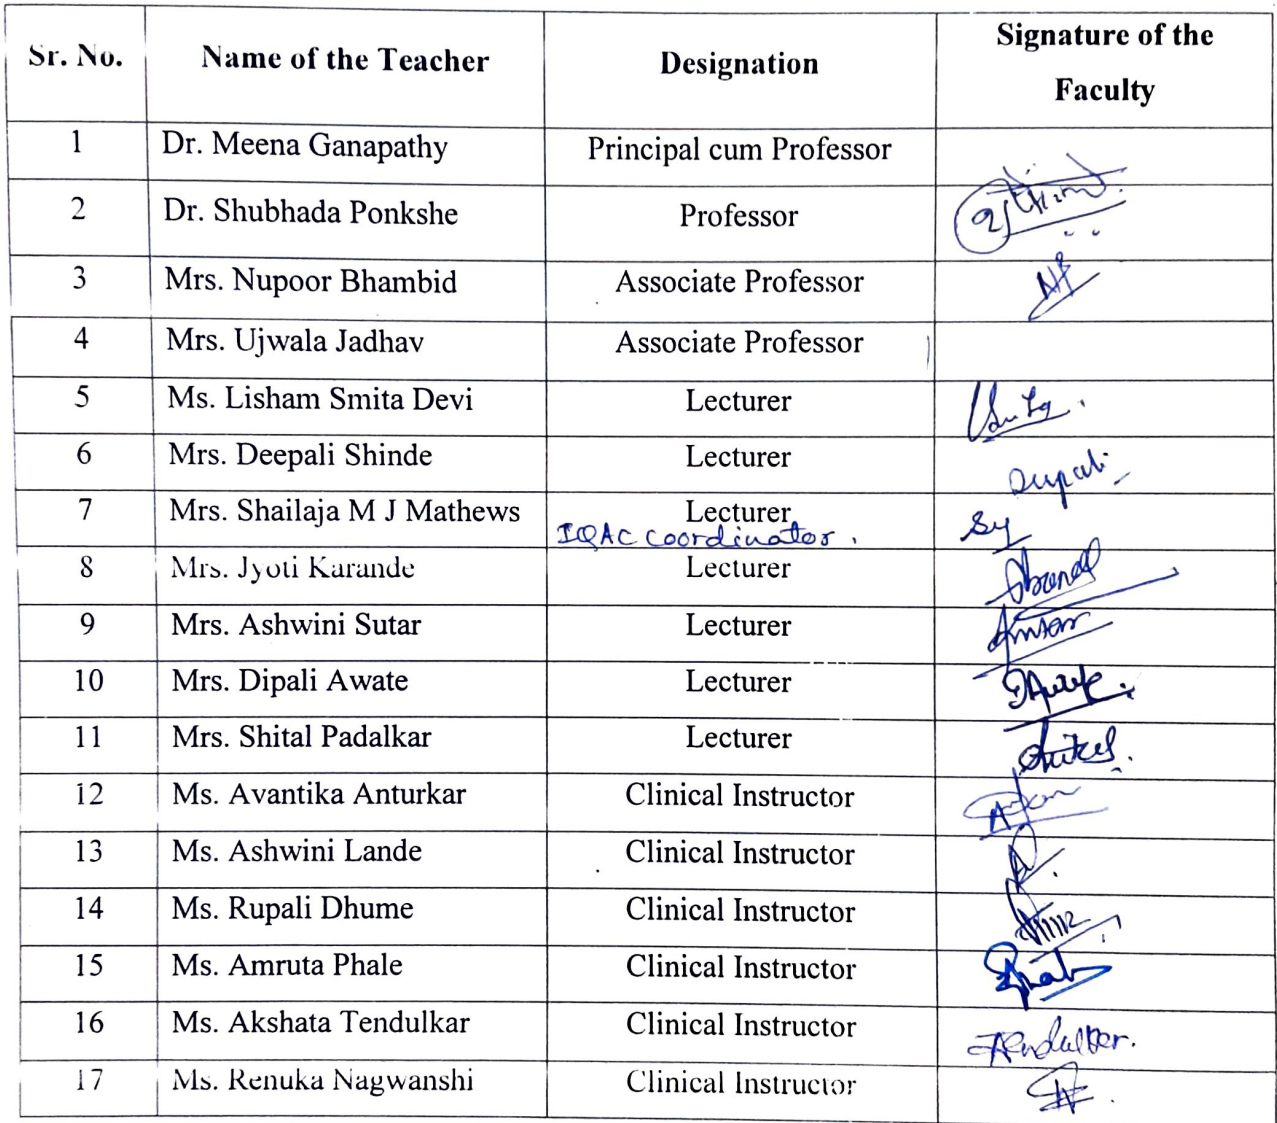 Sr. No. Name of the Teacher Designation Signature of the
Faculty
1 Dr. Meena Ganapathy Principal cum Professor
2 Dr. Shubhada Ponkshe Professor
3 Mrs. Nupoor Bhambid Associate Professor
4 Mrs. Ujwala Jadhav Associate Professor
5 Ms. Lisham Smita Devi Lecturer
6 Mrs. Deepali Shinde Lecturer
7 Mrs. Shailaja M J Mathews Lecturer
IQAC coordinator.
8 Mrs. Jyoti Karande Lecturer
9 Mrs. Ashwini Sutar Lecturer
10 Mrs. Dipali Awate Lecturer
11 Mrs. Shital Padalkar Lecturer
12 Ms. Avantika Anturkar Clinical Instructor
13 Ms. Ashwini Lande Clinical Instructor
14 Ms. Rupali Dhume Clinical Instructor
15 Ms. Amruta Phale Clinical Instructor
16 Ms. Akshata Tendulkar Clinical Instructor
17 Ms. Renuka Nagwanshi Clinical Instructor